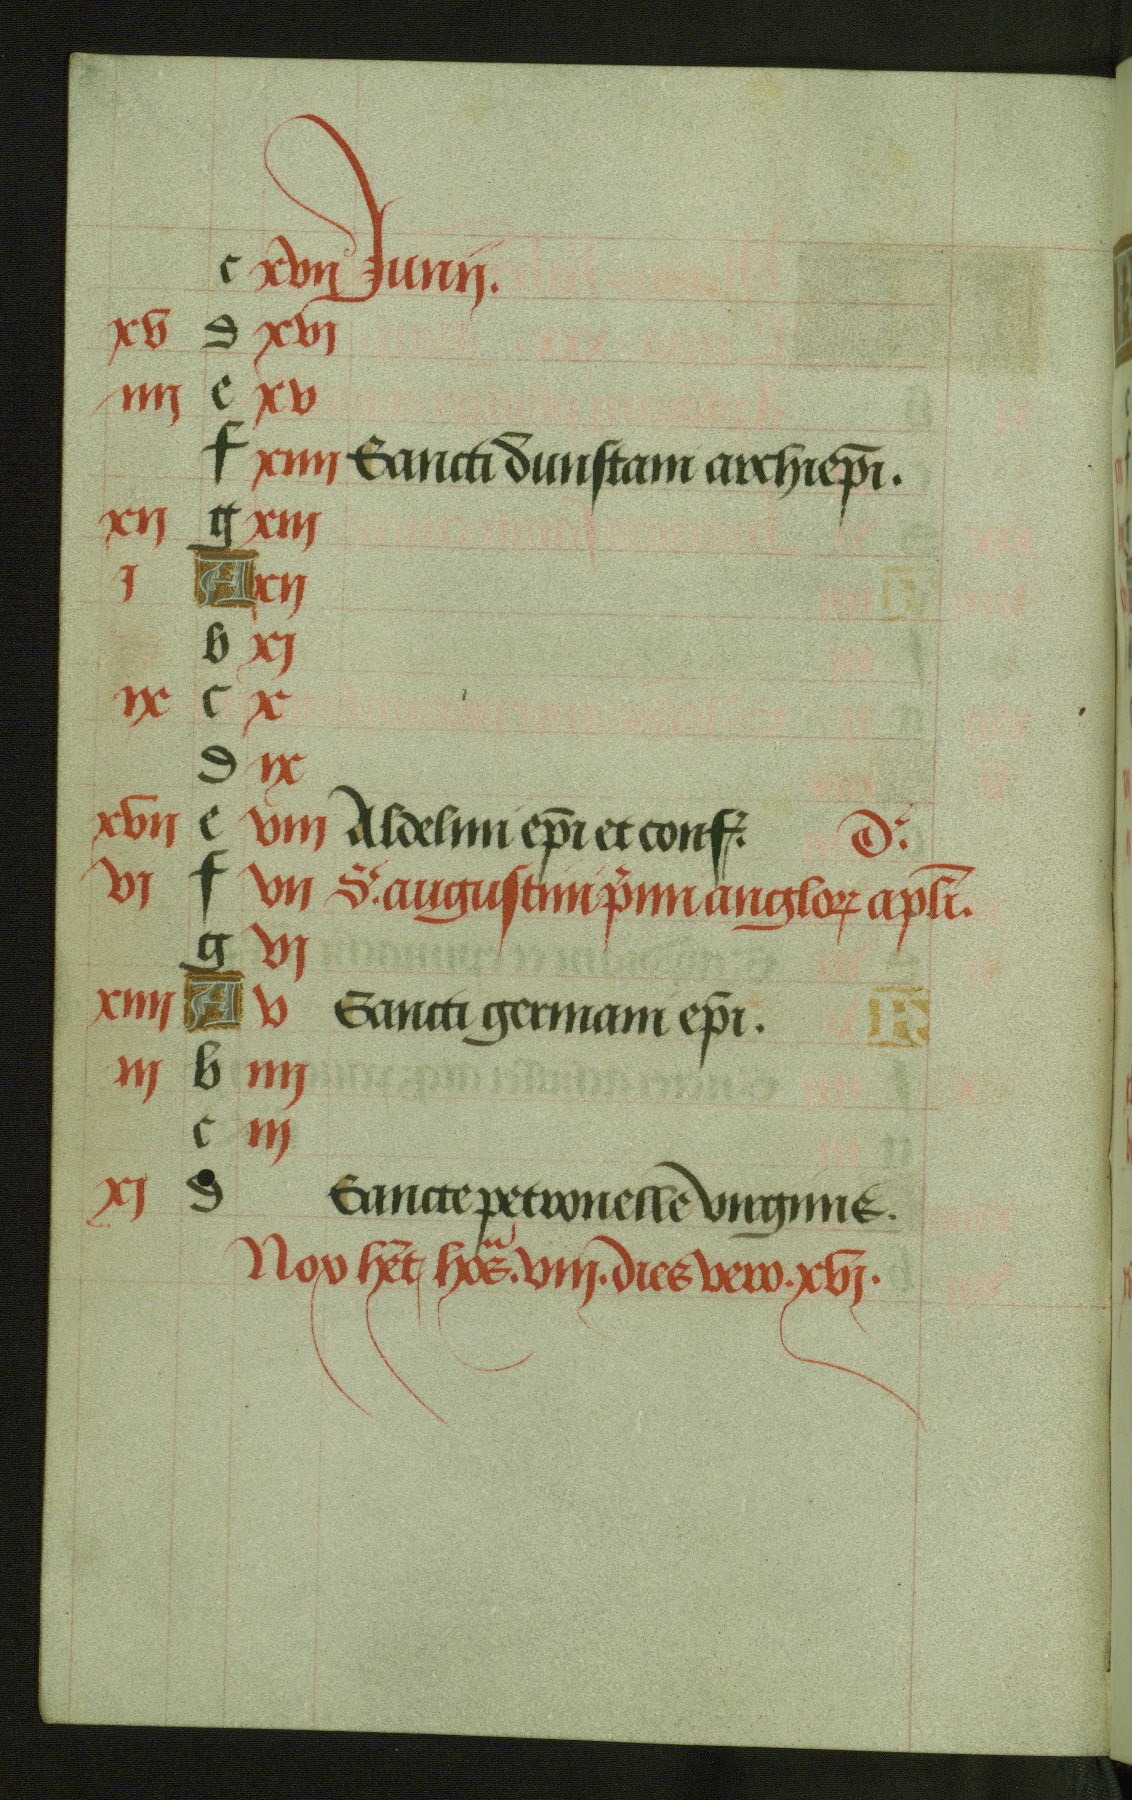 c xvij Junij.
xv d xvj
iiij e xv
f xiiij Sancti dunstani archiepi.
xij g xiij
j A xij
b xj
ix c x
d ix
xvij e viij Aldelmi epi et conf. D.
vj f vij S. augustini primi anglor apli.
g vj
xiiij A v Sancti germani epi.
iij b iiij
c iij
xj d Sancte petronelle virginis.
Nox het horas. viij. dies vero. xvj.